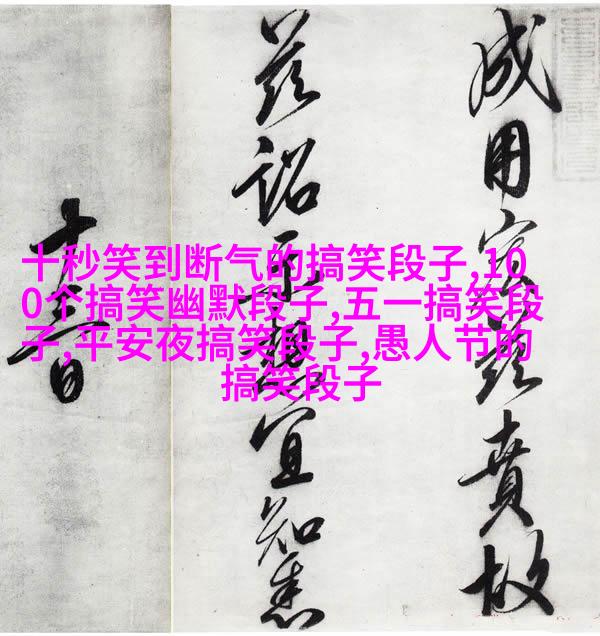 十秒笑到断气的搞笑段子,10
0个搞笑幽默段子,五一搞笑段
子,平安夜搞笑段子,愚人节的
搞笑段子
成用頒賁故
茲詔示想宜知悉
十三日